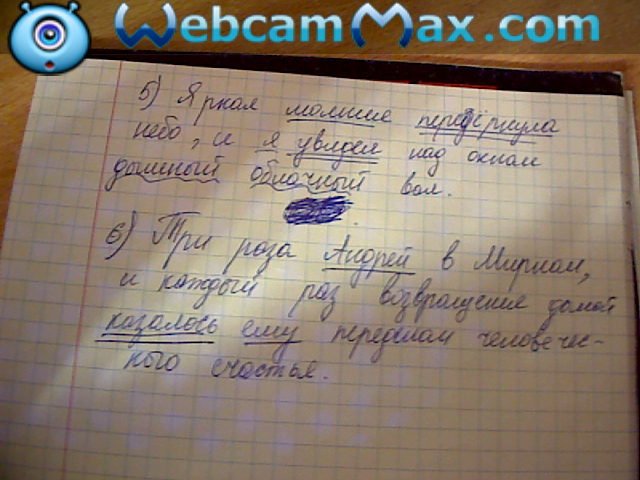 WebcamMax.com
5) Яркая молния передёрнула
небо, и я увидел над окном
дымный облачный вал.
6) Три раза Андрей в Мирном,
и каждый раз возвращение домой
казалось ему пределом человечес-
кого счастья.